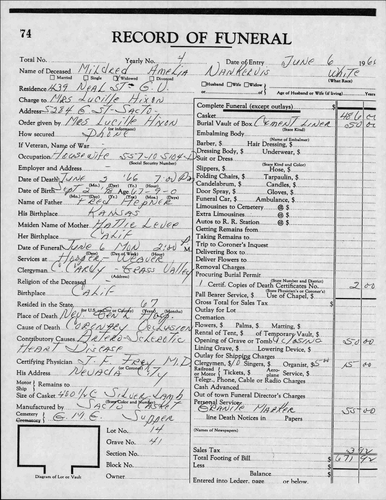 74
RECORD OF FUNERAL
Total No. Yearly No. 4 Date of Entry JUNE 6 196
Name of Deceased Mildred Amelia NANKERVIS White
Married Single Widowed Divorced (What Race)
Residence 439 NEAL ST - G.V. Husband Wife Widow of
Charge to MRS Lucille Hixon Age of Husband or Wife (if living) Years
Address 5284 G ST - SACTO-
Order given by MRS Lucille Hixon
(or informant)
How secured PHONE
If Veteran, Name of War
Occupation Housewife 557-10-5104-D
(Social Security Number)
Employer and Address
Date of Death JUNE 2 66 7:00 P
Date of Birth SEPT 2
Name of Father FRED HEPNER
His Birthplace KANSAS
Maiden Name of Mother HATTIE LEVER
Her Birthplace CALIF
Date of Funeral JUNE 6 MON 2:00 P.M.
Services at HOOPER-WEAVER
Clergyman C. CARDY GRASS VALLEY
Religion of the Deceased
Birthplace CALIF
Resided in the State 67
Place of Death NEV. CO. HOSP.
Cause of Death CORONARY OCCLUSION
Contributory Causes ARTERO-SCLEROTIC
HEART DISEASE
Certifying Physician M.D.
His Address NEVADA CITY
Motor Remains to
Ship
Size of Casket SILVER
Manufactured by SACTO CASKET
Cemetery G.M.E. UPPER
Lot No. 14
Grave No. 41
Section No.
Block No.
Owner
Diagram of Lot or Vault
Complete Funeral (except outlays) $
Casket 486 00
Burial Vault of Box CEMENT LINER 50 00
(State Kind)
Embalming Body
(Name of Embalmer)
Barber, $ Hair Dressing, $
Dressing Body, $ Underwear, $
Suit or Dress
(State Kind and Color)
Slippers, $ Hose, $
Folding Chairs, $ Tarpaulin, $
Candelabrum, $ Candles, $
Door Spray, $ Gloves, $
Funeral Car, $ Ambulance, $
Limousines to Cemetery @ $
Extra Limousines @ $
Autos to R. R. Station @ $
Getting Remains from
Taking Remains to
Trip to Coroner's Inquest
Delivering Box to
Deliver Flowers to
Removal Charges
Procuring Burial Permit
(State Number and District)
1 Certif. Copies of Death Certificate No. 2 00
Pall Bearer Service, $ Use of Chapel, $
Gross Total for Sales Tax $
Outlay for Lot
Cremation
Flowers, $ Palms, $ Matting, $
Rental of Tent, $ of Temporary Vault, $
Opening of Grave or Tomb & CLOSING 50 00
Lining Grave, $ Lowering Device, $
Outlay for Shipping Charges
Clergymen, $10 Singers, $ Organist, $5 15 00
Rail or Motor Tickets, $ Aeroplane Service, $
Teleg., Phone, Cable or Radio Charges
Cash Advanced
Out of town Funeral Director's Charges
Personal Service
GRANITE MARKER 55 00
line Death Notices in Papers
Sales Tax
Total Footing of Bill $ 671 92
Less $
Balance $
Entered into Ledger, page or below.